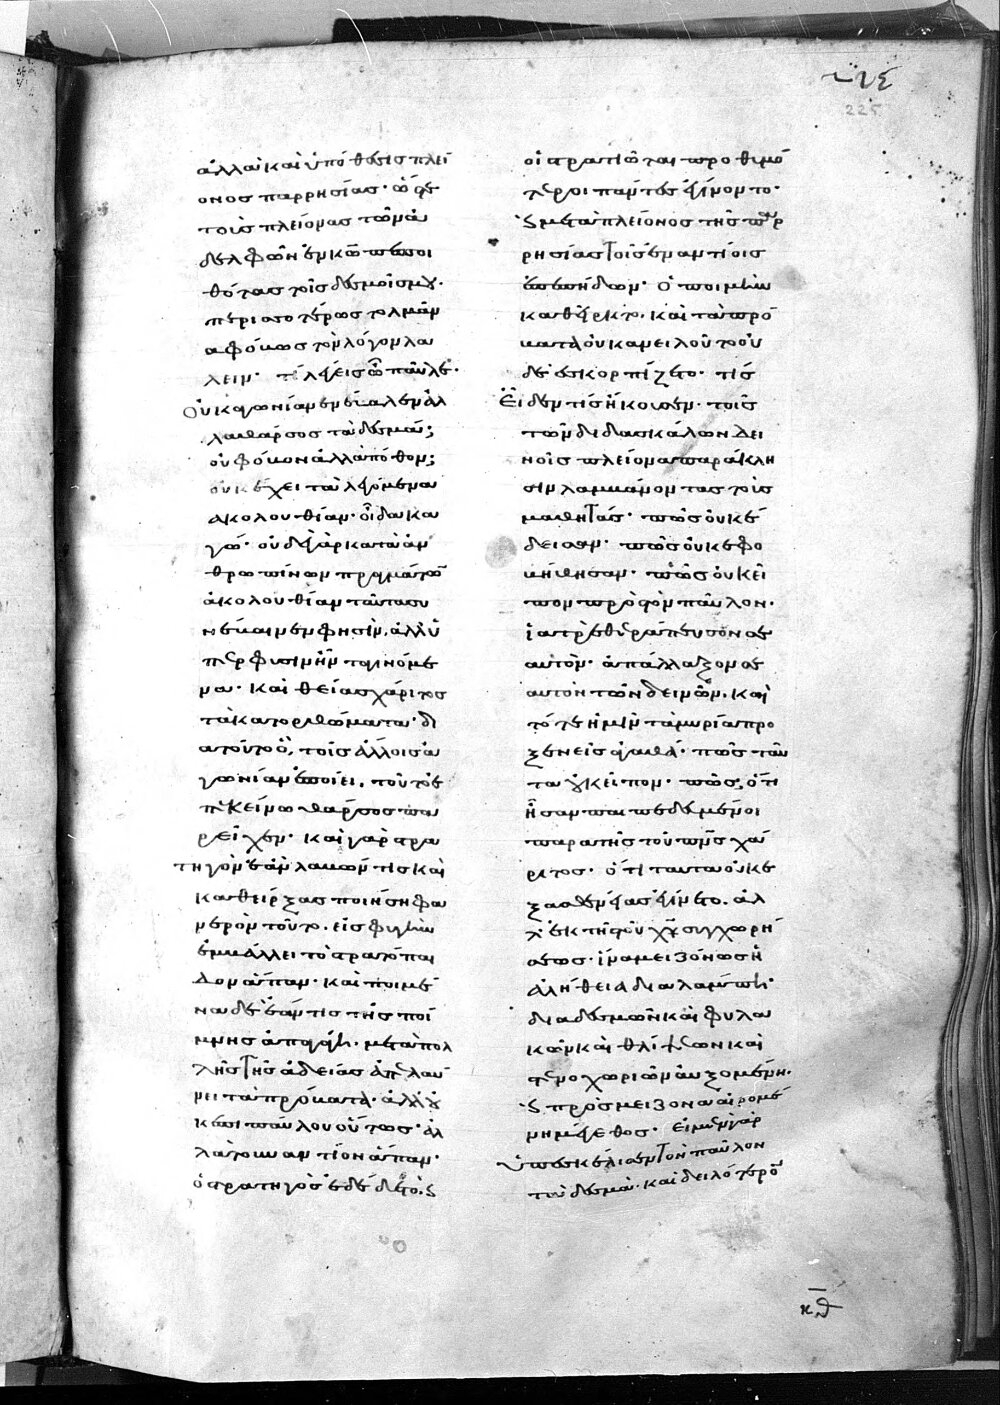 σις
225
ἀλλὰ καὶ ὑπόθεσις πλεί
ονος παρρησίας· ὥστε
τοὺς πλείονας τῶν ἀ
δελφῶν ἐν κῶ πεποι
θότας τοῖς δεσμοῖς μου·
περισσοτέρως τολμᾶν
ἀφόβως τὸν λόγον λα
λεῖν· τί λέγεις ὦ παῦλε·
Οὐκ ἀγωνίαν ἐνέβαλεν ἀλ
λὰ θάρσος τὰ δεσμά;
οὐ φόβον ἀλλὰ πόθον;
οὐκ ἔχει τὰ λεγόμενα
ἀκολουθίαν· οἶδα κα
γώ· οὐδὲ γὰρ κατὰ ἀν
θρωπίνων πραγμάτων
ἀκολουθίαν ταῦτα συ
νέβαινεν φησίν, ἀλλ' ὑ
πὲρ φύσιν ἦν τὰ γινόμε
να· καὶ θείας χάριτος
τὰ κατορθώματα· δι
ὰ τοῦτο ὃ, τοῖς ἄλλοις ἀ
γωνίαν ἐποίει, τοῦτο ἐ
π' ἐκείνω θάρσος πα
ρεῖχεν· καὶ γὰρ στρα
τηγὸν ἐὰν λαβών τις καὶ
καθείρξας ποιήση φα
νερὸν τοῦτο, εἰς φυγὴν
ἐμβάλλει τὸ στρατόπε
δον ἅπαν· καὶ ποιμέ
να δὲ ἐάν τις τῆς ποί
μνης ἀπαγάγη· μετὰ πολ
λῆς τῆς ἀδείας ἀπελαύ
νει τὰ πρόβατα· ἀλλ' οὐ
κ ἐπὶ παύλου οὕτως· ἀλ
λὰ τοὐναντίον ἅπαν·
ὁ στρατηγὸς ἐδέδετο· καὶ
οἱ στρατιῶται προθυμό
τεροι πάντες ἐγίνοντο·
καὶ μετὰ πλείονος τῆς παρ
ρησίας τοῖς ἐναντίοις
ἐπεπήδων· ὁ ποιμὴν
καθεῖρκτο, καὶ τὰ πρό
βατα οὐκ ἀνειλοῦτο οὐ
δὲ ἐσκορπίζετο· τίς
Εἶδεν τίς ἤκουσεν· τοῖς
τῶν διδασκάλων δει
νοῖς πλείονα παράκλη
σιν λαμβάνοντας τοὺς
μαθητάς· πῶς οὐκ ἔ
δεισαν· πῶς οὐκ ἐφο
βήθησαν· πῶς οὐκ εἶ
πον πρὸς τὸν παῦλον·
ἰατρὲ θεράπευσον σε
αυτόν· ἀπάλλαξον σε
αυτὸν τῶν δεινῶν, καὶ
τότε ἡμῖν τὰ μυρία προ
ξενεῖς ἀγαθά· πῶς ταῦ
τα οὐκ εἶπον· πῶς; ὅτι
ἦσαν πεπαιδευμένοι
παρὰ τῆς τοῦ πνς χά
ριτος· ὅτι ταῦτα οὐκ ἐ
ξ ἀσθενείας ἐγίνετο, ἀλ
λ' ἐκ τῆς τοῦ χυ συγχωρή
σεως· ἵνα μειζόνως ἡ
ἀλήθεια διαλάμπη·
διὰ δεσμῶν καὶ φυλα
κῶν καὶ θλίψεων καὶ
στενοχωριῶν αὐξομένη·
καὶ πρὸς μείζονα αἰρομέ
νη μέγεθος· Εἰ μὲν γὰρ
ὑπεσκέλισεν τὸν παῦλον
τὰ δεσμά· καὶ δειλότερον
κθ